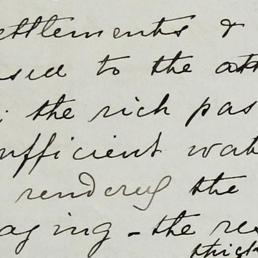 ettlements &
used to the att
the rich pas
ufficient wat
renders the
aging - the res
thick